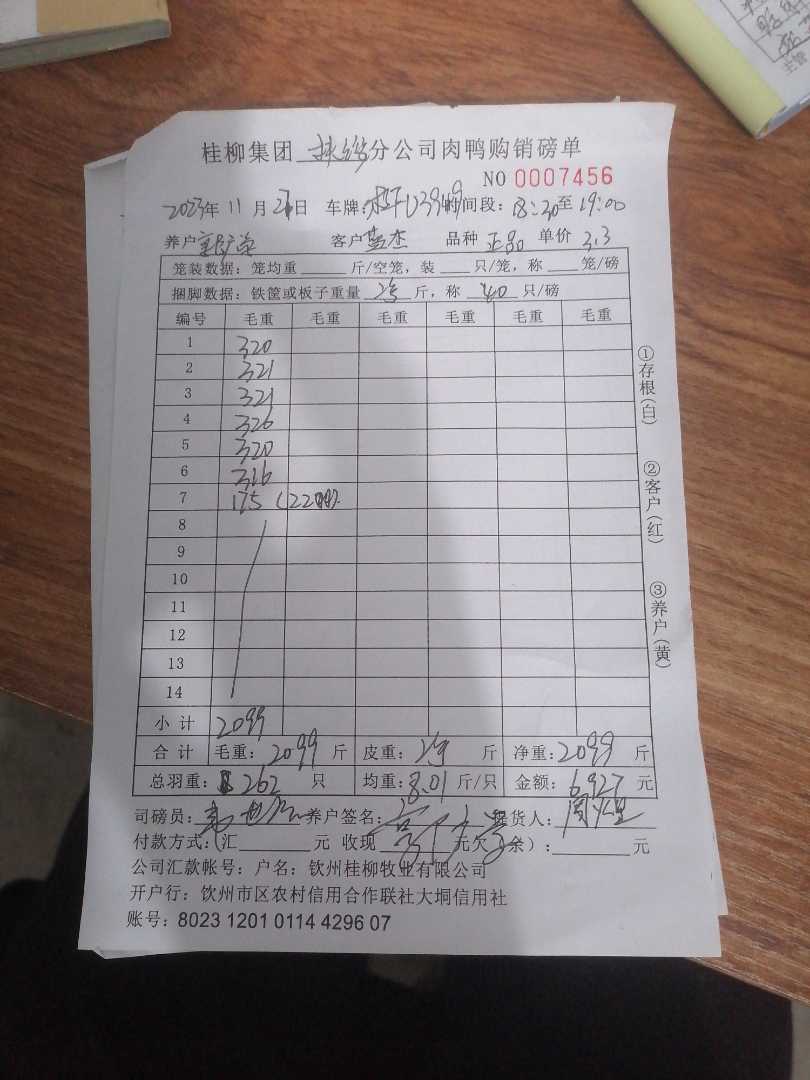 桂柳集团 扶绥 分公司肉鸭购销磅单
NO 0007456
2023年 11 月 27日 车牌: 时间段: 18:30至 19:00
养户 客户 蓝杰 品种 正品 单价 3.3
笼装数据: 笼均重 斤/空笼, 装 只/笼, 称 笼/磅
捆脚数据: 铁筐或板子重量 斤, 称 40 只/磅
编号 毛重 毛重 毛重 毛重 毛重 毛重
1 320
2 321
3 321
4 326
5 320
6 316
7 175 (22只)
8
9
10
11
12
13
14
小 计 2099
合 计 毛重: 2099 斤 皮重: 斤 净重: 2099 斤
总羽重: 262 只 均重: 8.01 斤/只 金额: 6927 元
司磅员: 养户签名: 提货人:
付款方式: (汇 元 收现 元欠(余): 元
公司汇款帐号: 户名: 钦州桂柳牧业有限公司
开户行: 钦州市区农村信用合作联社大垌信用社
账号: 8023 1201 0114 4296 07
①存根(白)
②客户(红)
③养户(黄)